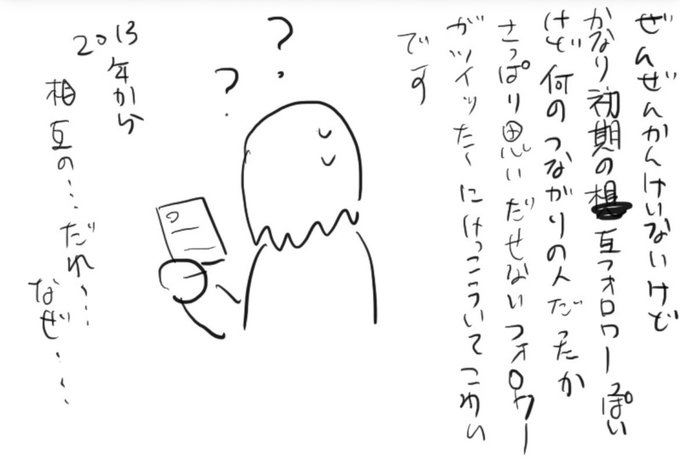 ぜんぜんかんけいないけど
かなり初期の相互フォロワーっぽい
けど何のつながりの人だったか
さっぱり思いだせないフォロワー
がツイッターにけっこういてこわい
です
?
?
2013年から
相互の…だれ、…
なぜ…